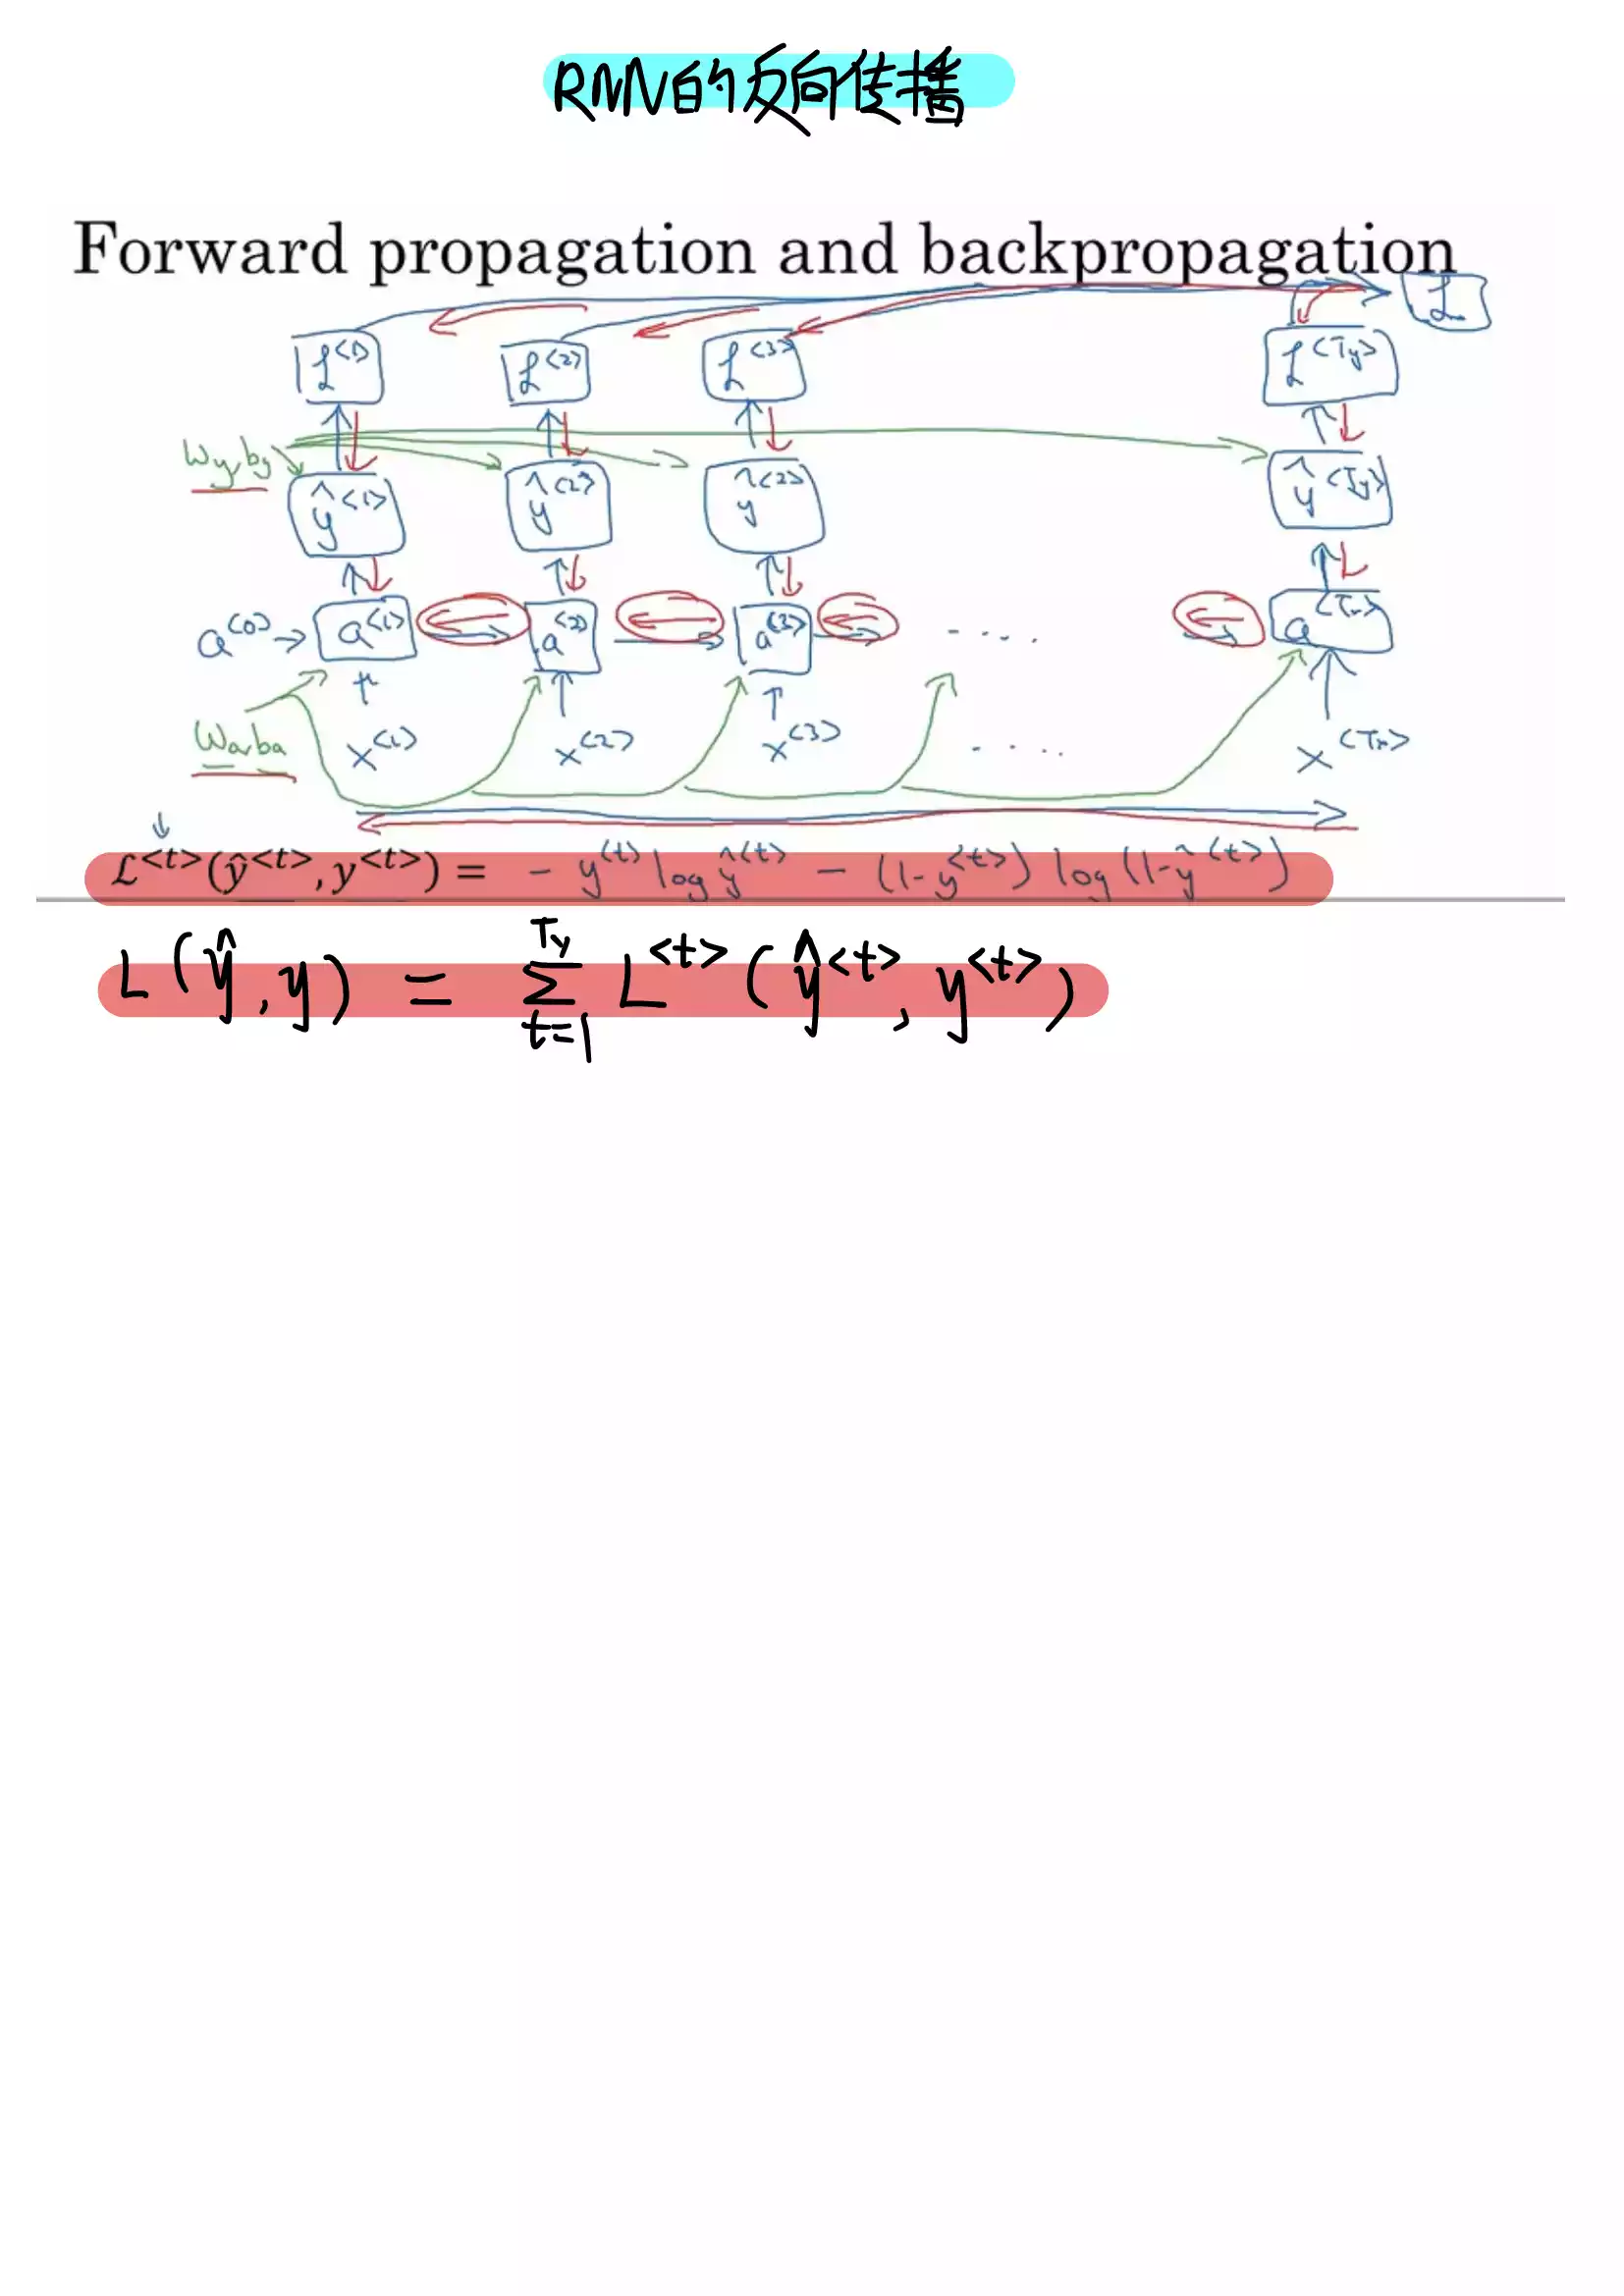 RNN的反向传播
Forward propagation and backpropagation
ℒ
ℒ<1> ℒ<2> ℒ<3> ℒ<Ty>
Wy,by
ŷ<1> ŷ<2> ŷ<2> ŷ<Ty>
a<0> → a<1> a<2> a<3> - .... a<Tx>
Wa,ba
x<1> x<2> x<3> ..... x<Tx>
ℒ<t>(ŷ<t>, y<t>) = - y<t> log ŷ<t> - (1-y<t>) log (1-ŷ<t>)
L(ŷ,y) = Σ_{t=1}^{Ty} L<t>(ŷ<t>, y<t>)